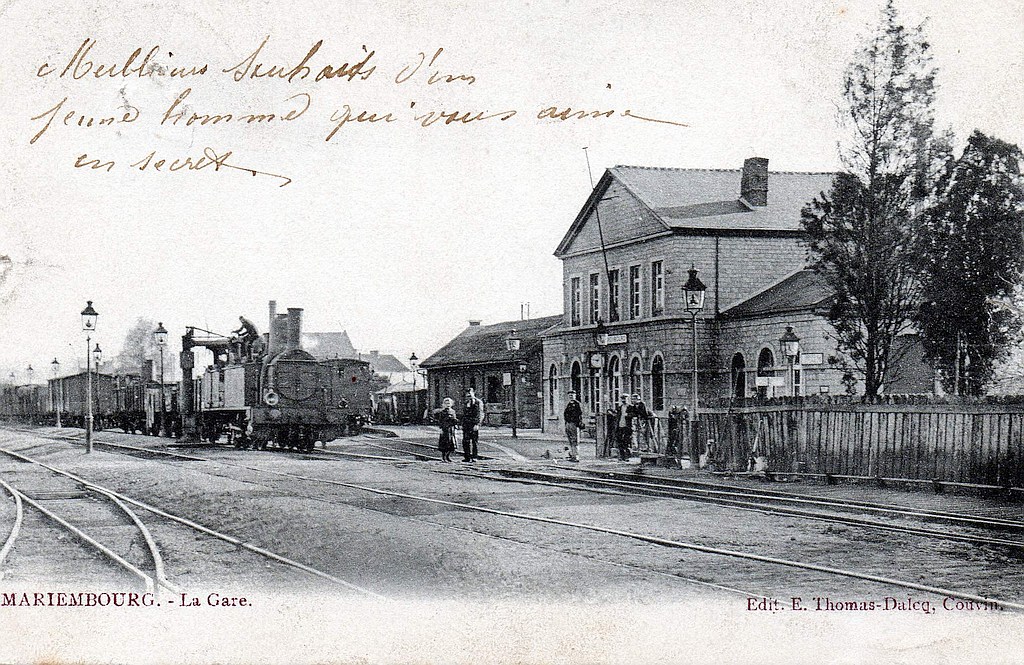 Meilleurs Souhaits d'un
jeune homme qui vous aime
en secret.
MARIEMBOURG. - La Gare.
Edit. E. Thomas-Dalcq, Couvin.